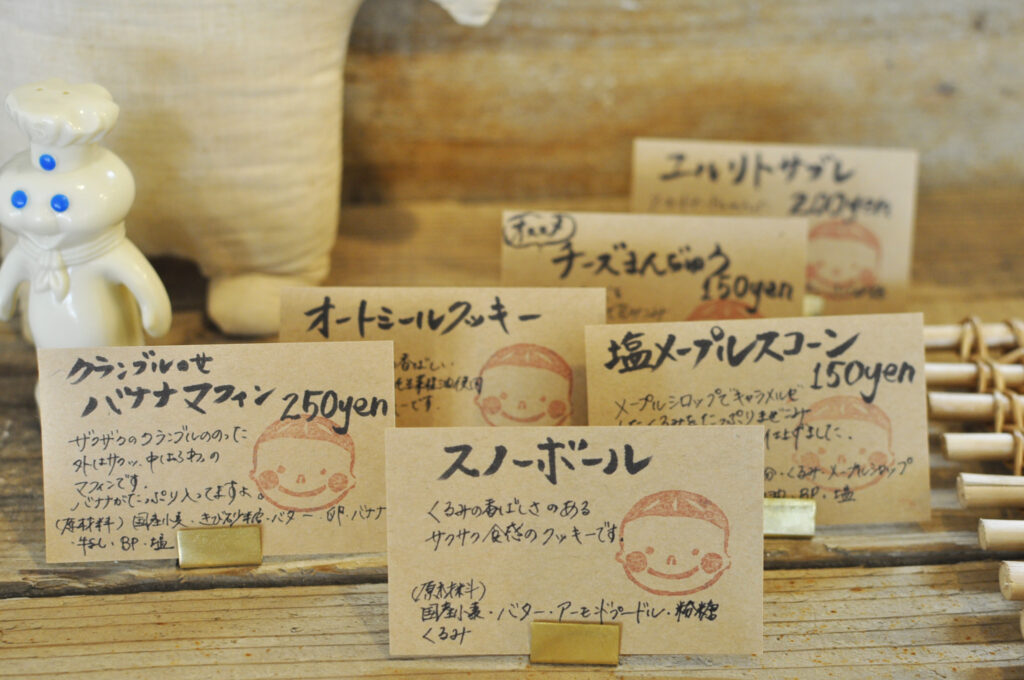 エルリトサブレ
200yen
チーズまんじゅう
150yen
オートミールクッキー
塩メープルスコーン
150yen
メープルシロップでキャラメルゼ
したくるみをたっぷりまぜこみ
仕上げました。
・くるみ・メープルシロップ
BP・塩
クランブルのせ
バナナマフィン
250yen
ザクザクのクランブルののった
外はサクッ、中はふわっの
マフィンです。
バナナがたっぷり入ってますよ。
(原材料) 国産小麦・きび砂糖・バター・卵・バナナ
・牛乳・BP・塩
スノーボール
くるみの香ばしさのある
サクサク食感のクッキーです。
(原材料)
国産小麦・バター・アーモンドプードル・粉糖
くるみ